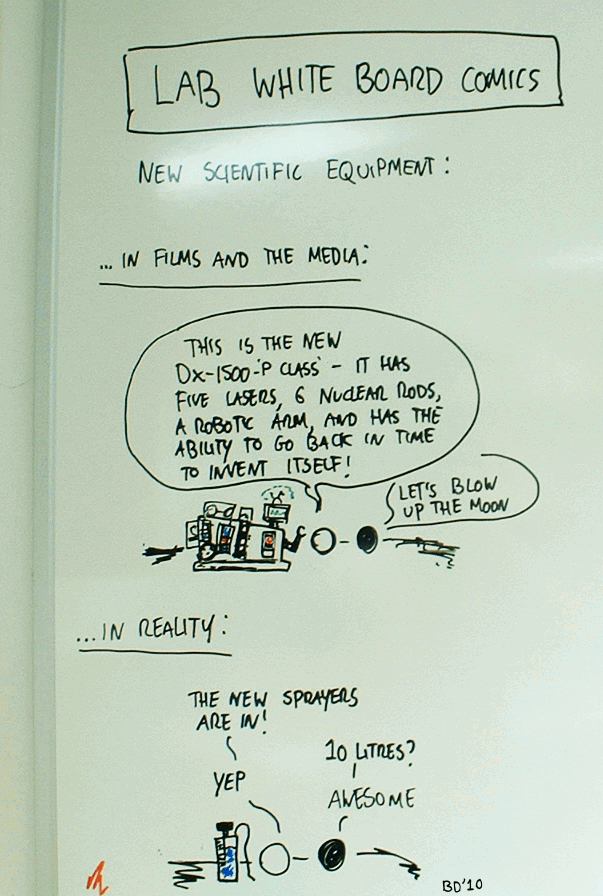 LAB WHITE BOARD COMICS
NEW SCIENTIFIC EQUIPMENT:
... IN FILMS AND THE MEDIA:
THIS IS THE NEW
DX-1500-'P CLASS' - IT HAS
FIVE LASERS, 6 NUCLEAR RODS,
A ROBOTIC ARM, AND HAS THE
ABILITY TO GO BACK IN TIME
TO INVENT ITSELF!
LET'S BLOW
UP THE MOON
...IN REALITY:
THE NEW SPRAYERS
ARE IN!
10 LITRES?
YEP
AWESOME
BD'10